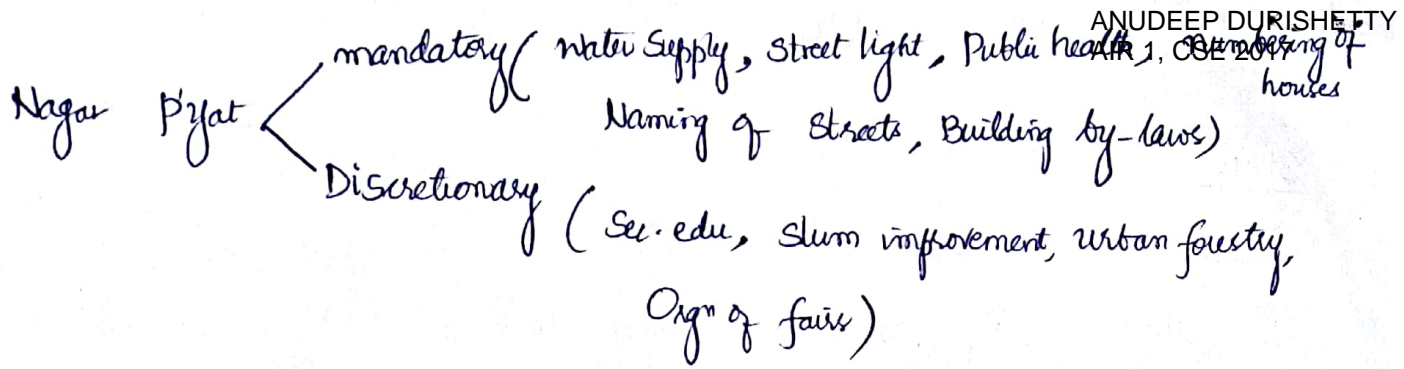 ANUDEEP DURISHETTY
AIR 1, CSE 2017
mandatory ( Water Supply, Street light, Public health, numbering of
houses
Nagar P'yat
Naming of Streets, Building by-laws)
Discretionary ( Sec. edu, Slum improvement, Urban forestry,
Orgn of fairs)